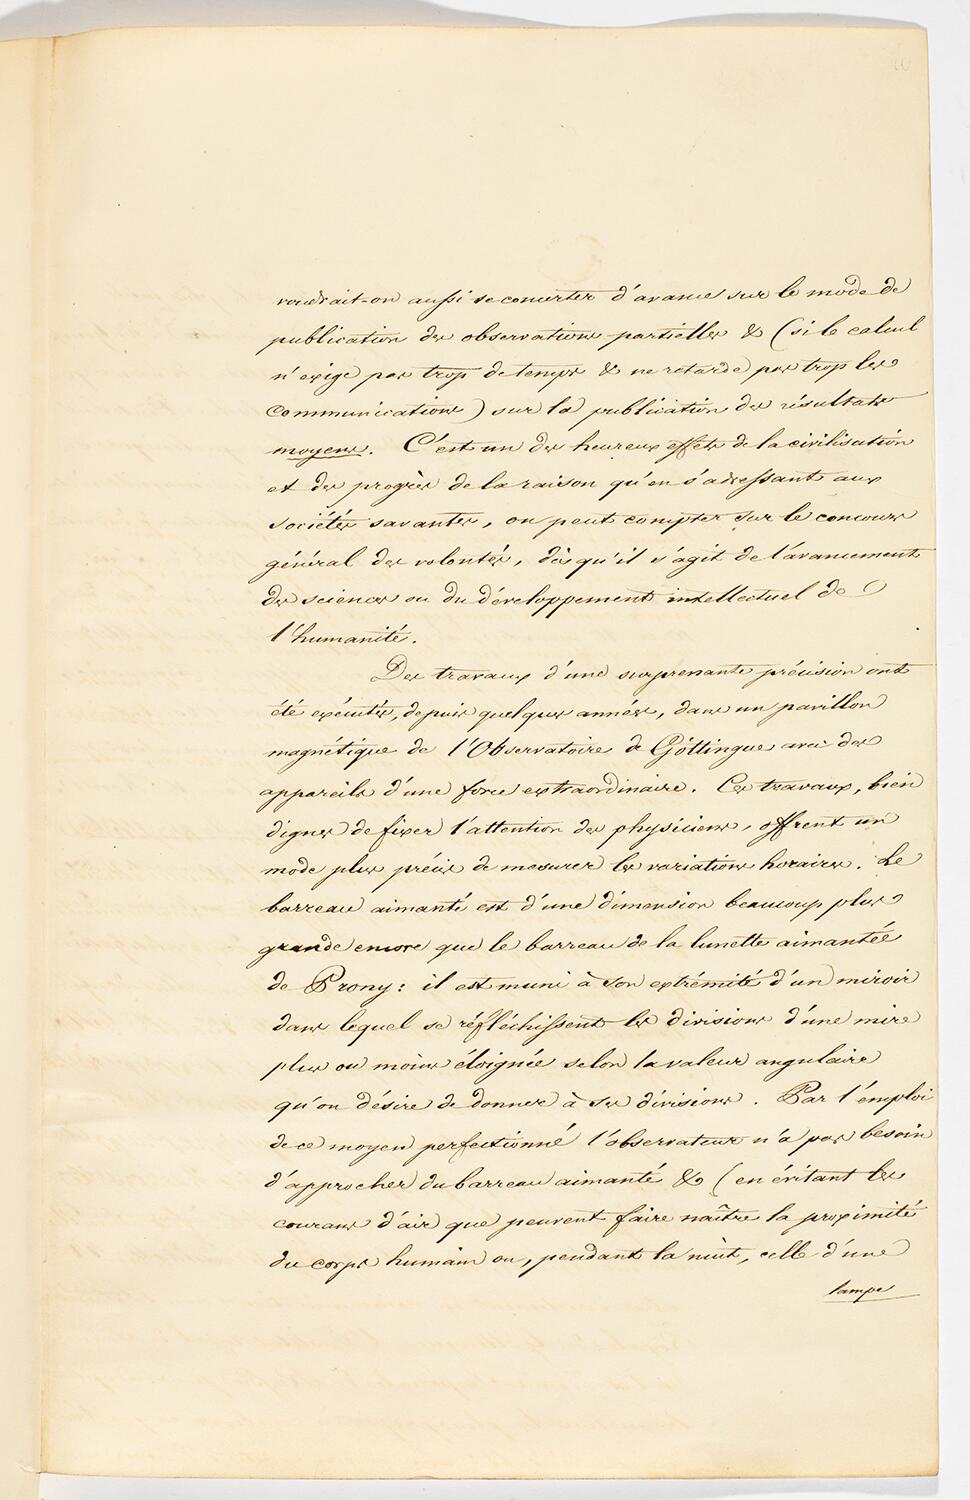 voudrait-on aussi se concerter d'avance sur le mode de
publication des observations partielles & (si le calcul
n'exige pas trop de temps & ne retarde pas trop les
communications) sur la publication des résultats
moyens. C'est un des heureux effets de la civilisation
et des progrès de la raison qu'en s'adressant aux
sociétés savantes, on peut compter sur le concours
général des volontés, dès qu'il s'agit de l'avancement
des sciences ou du développement intellectuel de
l'humanité.
Des travaux d'une surprenante précision ont
été exécutés, depuis quelques années, dans un pavillon
magnétique de l'Observatoire de Göttingue avec des
appareils d'une force extraordinaire. Ces travaux, bien
dignes de fixer l'attention des physiciens, offrent un
mode plus précis de mesurer les variations horaires. Le
barreau aimanté est d'une dimension beaucoup plus
grande encore que le barreau de la lunette aimantée
de Prony: il est muni à son extrémité d'un miroir
dans lequel se réfléchissent les divisions d'une mire
plus ou moins éloignée selon la valeur angulaire
qu'on désire de donner à ses divisions. Par l'emploi
de ce moyen perfectionné l'observateur n'a pas besoin
d'approcher du barreau aimanté & (en évitant les
courans d'air que peuvent faire naître la proximité
du corps humain ou, pendant la nuit, celle d'une
lampe